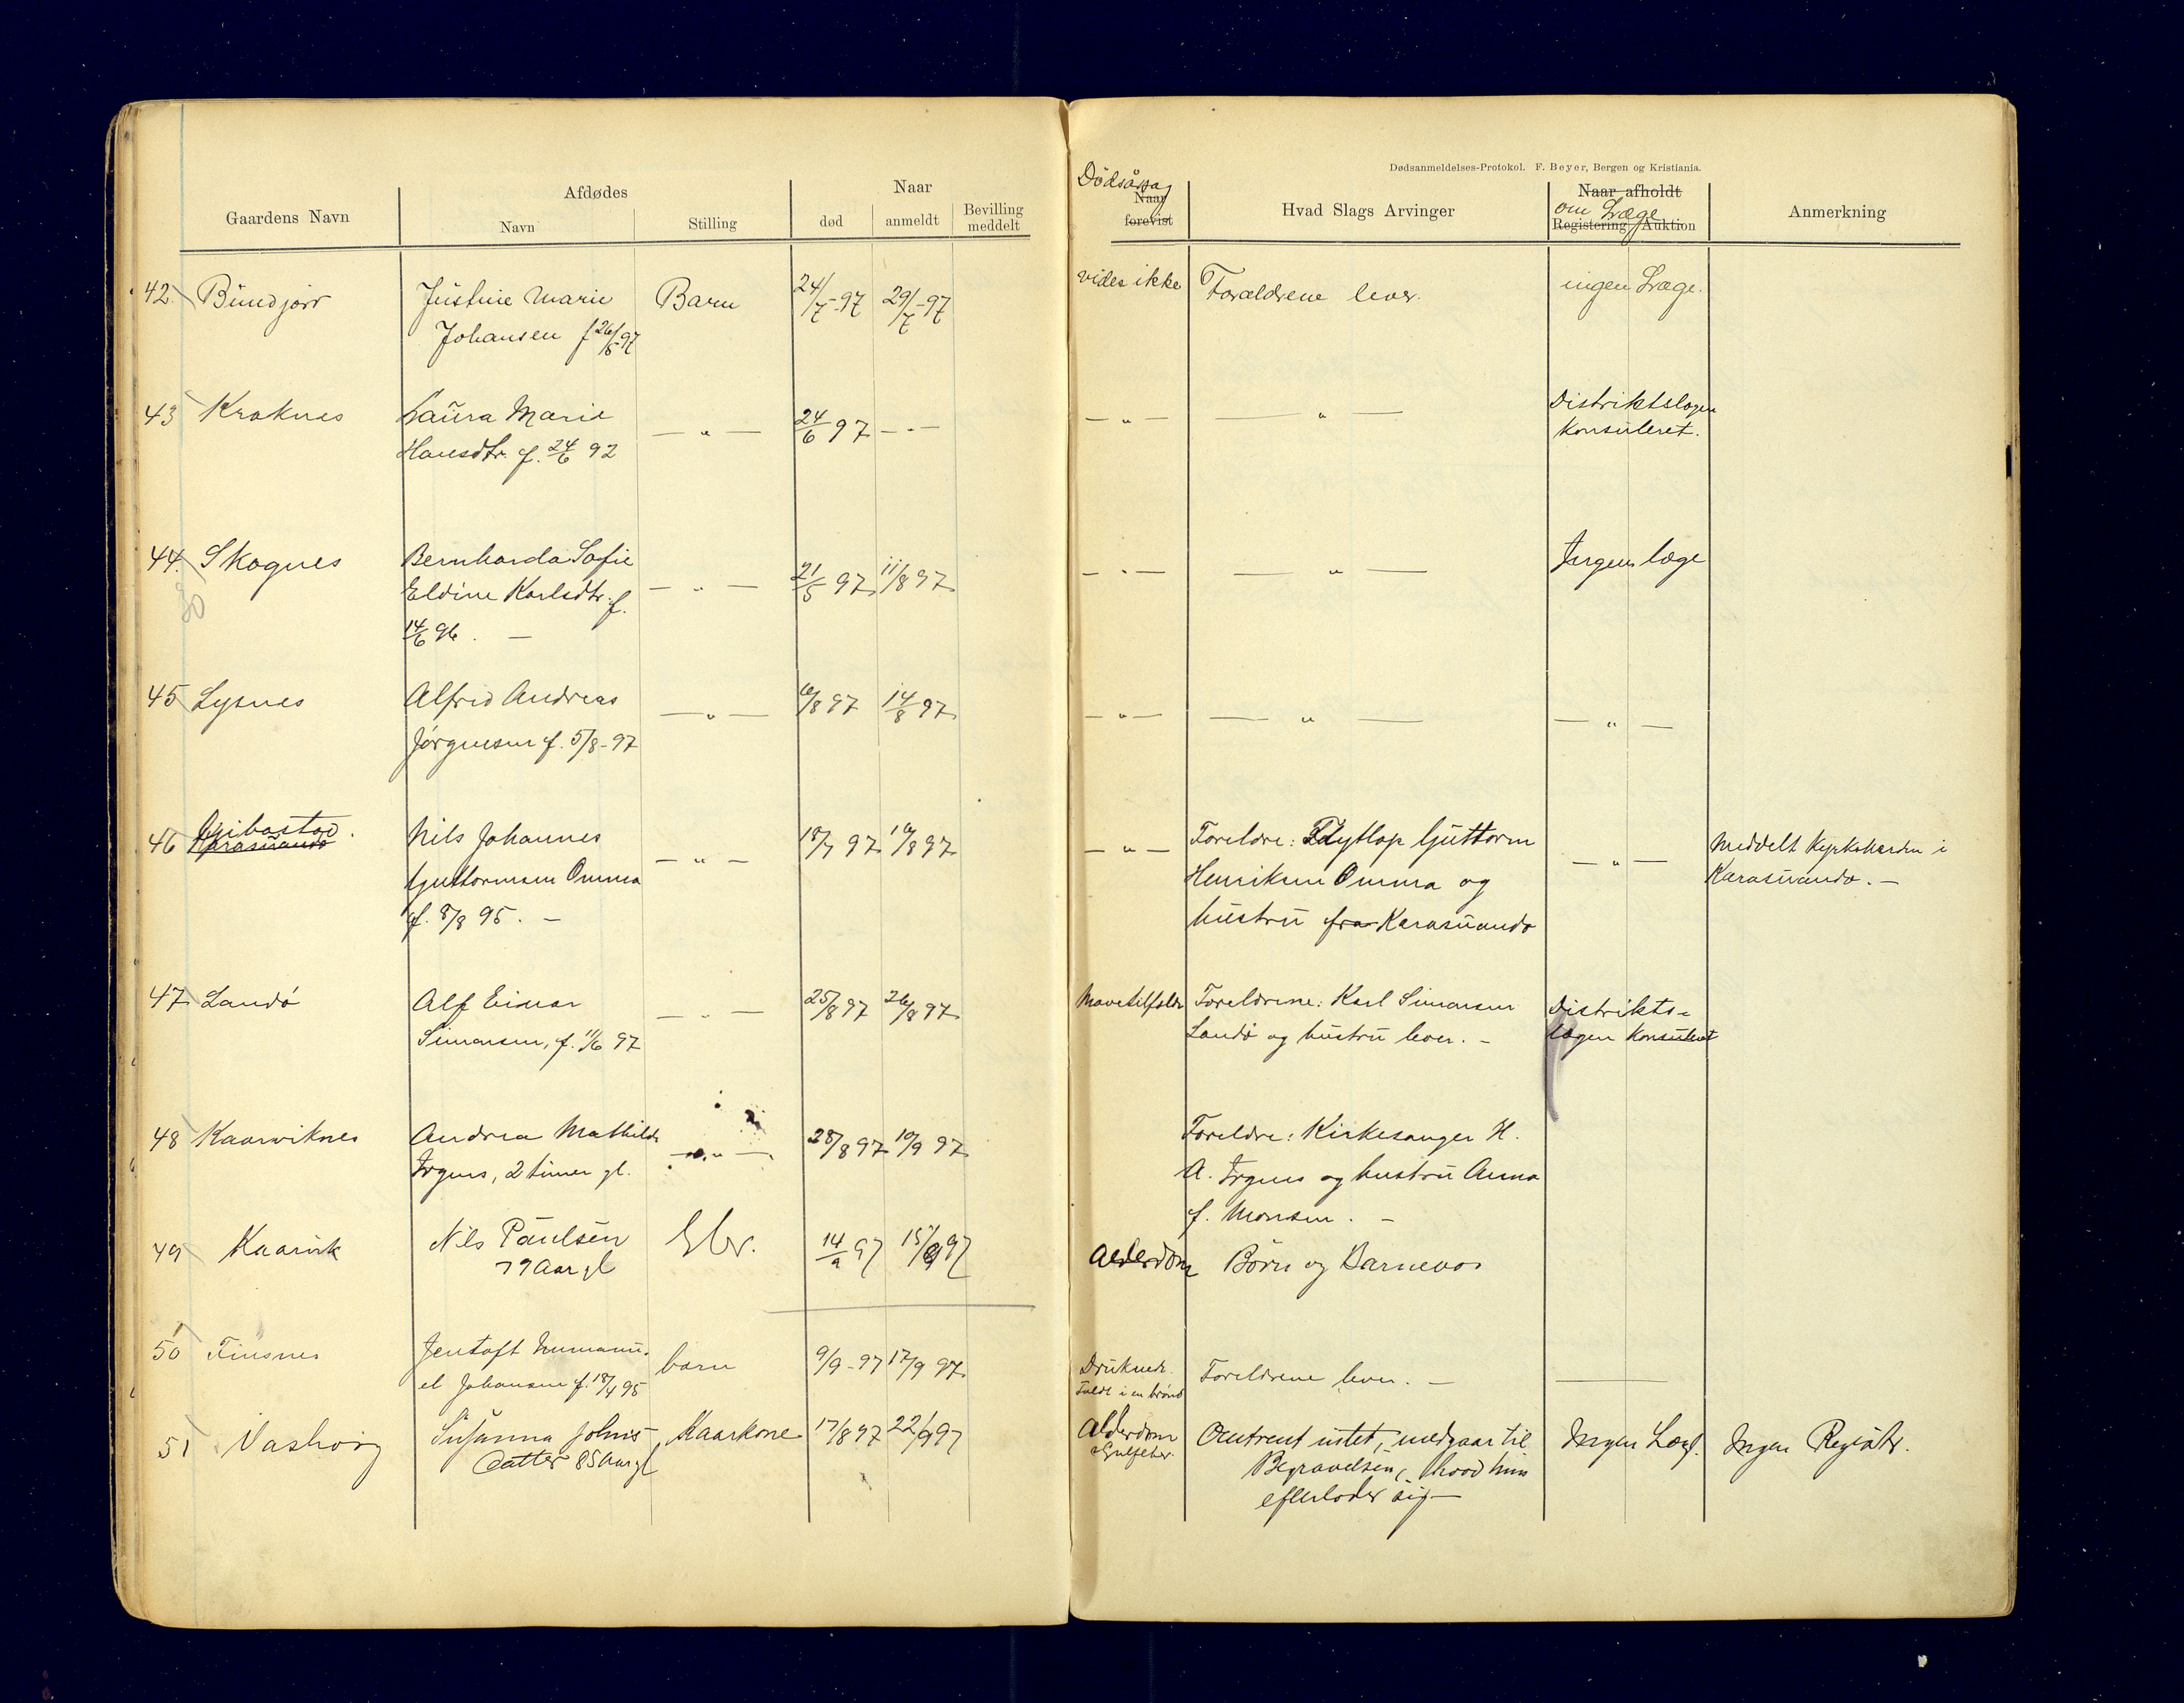 Dødsanmeldelses-Protokol. F. Beyer, Bergen og Kristiania.
Gaardens Navn
Afdødes
Navn
Stilling
Naar
død
anmeldt
Bevilling
meddelt
Dödsårsag
Naar
forevist
Hvad Slags Arvinger
Naar afholdt
om Læge
Registering Auktion
Anmerkning
42. Bundjord Justine Marie Barn 24/7-97 29/7-97 vides ikke Forældrene lever. ingen Læge.
Johansen f 26/5 97
43 Kraknes Laura Marie — " — 24/6 97 — " — — " — — " — Distriktslægen
Hansdtr. f. 24/6 92 Konsuleret.
44. Skognes Bernharda Sofie — " — 21/5 97 11/8 97 — " — — " — Ingen læge
Eldine Karlsdtr. f.
14/6 96. —
45 Lysnes Alfred Andreas — " — 6/8 97 14/8 97 — " — — " — — " —
Jørgensen f. 5/8-97
Gibostad.
46 Karasuando Nils Johannes — " — 18/7 97 16/8 97 — " — Foreldre: Flytlap Guttorm — " — Meddelt Kyrkoherden i
Guttormsen Omma Henriksen Omma og Karasuando. —
f. 8/8 95. — hustru fra Karasuando
47 Landö Alf Einar — " — 25/8 97 26/8 97 Mavetilfælde Foreldrene: Karl Simonsen Distrikts-
Simonsen, f. 11/6 97 Landö og hustru lever. — lægen Konsuleret
48 Kaarviknes Andrea Mathilde — " — 28/8 97 10/9 97 Foreldre: Kirkesanger H.
Irgens, 2 timer gl. A. Irgens og hustru Anna
f. Monsen. —
49 Kaarvik Nils Paulsen Gbr. 14/9 97 15/9 97 Alderdom Børn og Barnebørn
79 Aar gl
50 Finsnes Jentoft Immanu- barn 9/9-97 17/9 97 Druknede. Foreldrene lever. —
el Johansen f. 18/4 95 Faldt i en brønd
51 Vashoug Susanna Johns- Kaarkone 17/8 97 22/9 97 Alderdom Omtrent intet, medgaar til Ingen Læge. Ingen Registr.
datter 85 Aar gl Begravelsen, hvad hun
efterlader sig —